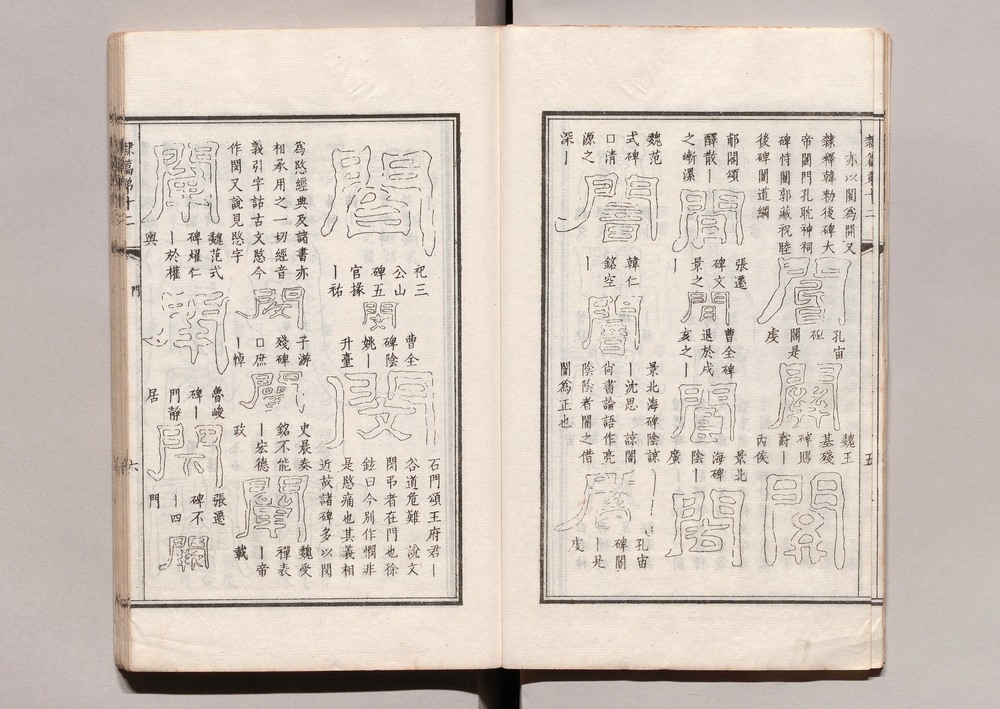 隸篇第十二
五
亦以闓為開又
隸釋韓勑後碑大
帝闓門孔耽神祠
碑恃闓郭藏祝睦
後碑闓道綱
孔宙
碑
闓是
虔
關
魏王
基殘
碑賜
爵丨
內侯
關
郙閣頌
醳散丨
之嘶漯
閒
張遷
碑文
景之
丨
間
曹全碑
退於戌
亥之丨
景北
海碑
陰丨
廣
魏范
式碑
口清
源之
深丨
闇
韓仁
銘空
丨
闇
景北海碑陰諒
丨沈思　諒闇
尙書論語作亮
陰陰者闇之借
闇為正也
孔宙
碑闓
丨是
虔
閻
祀三
公山
碑五
官掾
丨祐
閔
曹全
碑陰
姚丨
升臺
閔
石門頌王府君丨
谷道危難　說文
閔弔者在門也徐
鉉曰今別作憫非
是愍痛也其義相
近故諸碑多以閔
為愍經典及諸書亦
相承用之一切經音
義引字詁古文愍今
作閔又說見愍字
閔
子游
殘碑
口庶
丨悼
史晨奏
銘不能
丨宏德
政
闡
魏受
禪表
丨帝
載
闡
魏范式
碑耀仁
丨於權
輿
魯峻
碑丨
門靜
居
張遷
碑不
丨四
門
闕
隸篇第十二
門
六